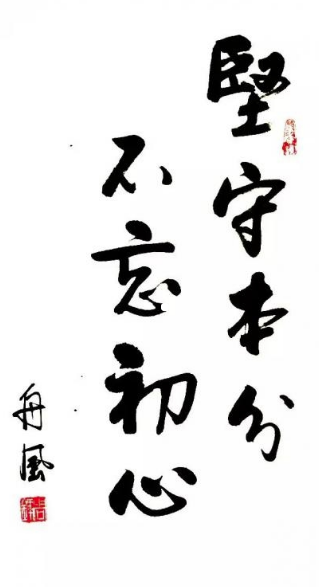 堅守本分
不忘初心
舟風